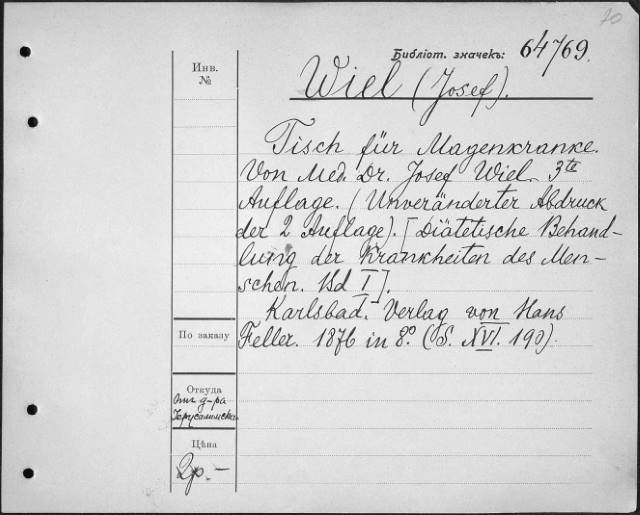 20
Библіот. значекъ: 64769.
Инв.
№
Wiel (Josef).
Tisch für Magenkranke.
Von Med. Dr. Josef Wiel. 3te
Auflage. (Unveränderter Abdruck
der 2 Auflage). [Diätetische Behand-
lung der Krankheiten des Men-
schen. Bd I].
Karlsbad. Verlag von Hans
Feller. 1876 in 8° (S. XVI. 190).
По заказу
Откуда
Отъ д-ра
Цѣна
2р. –